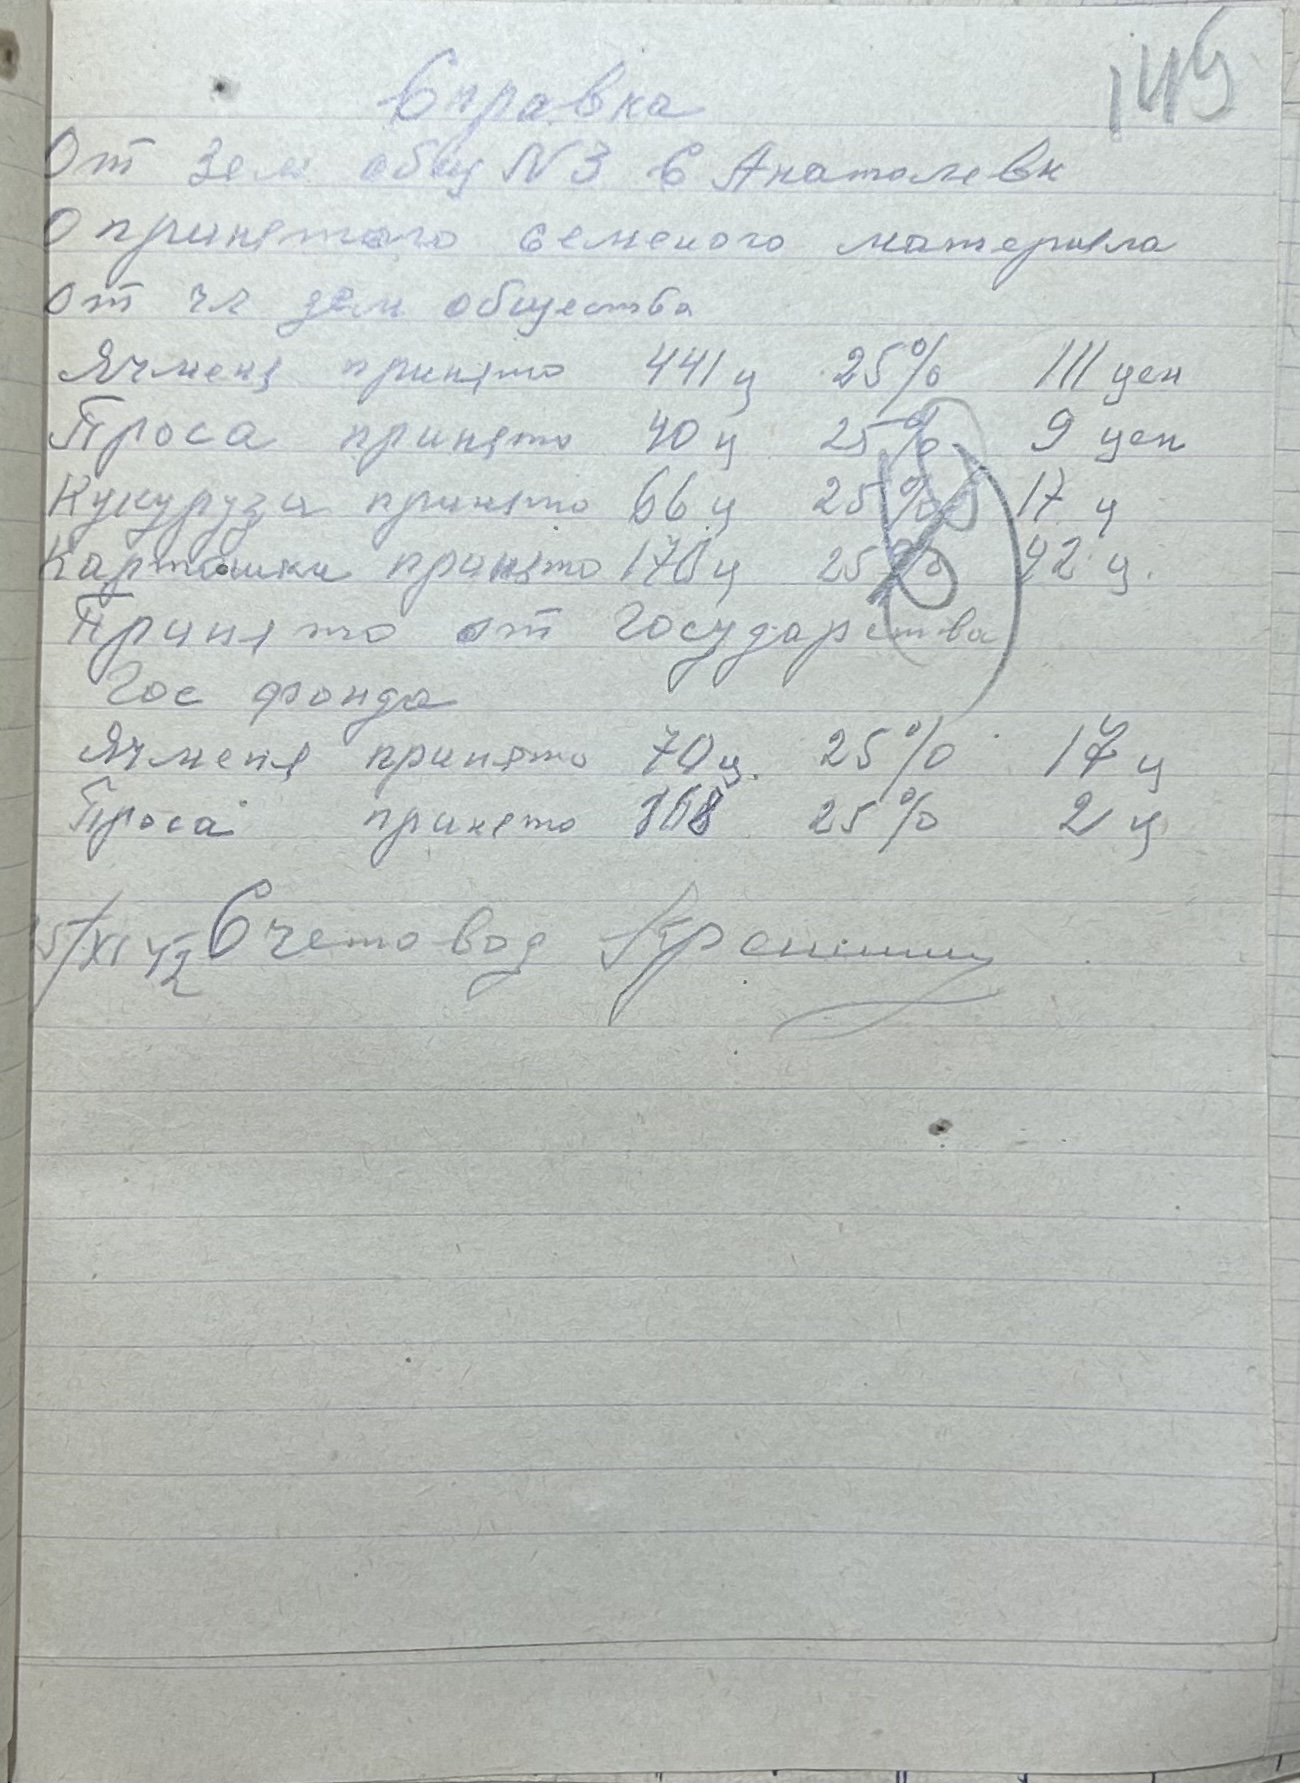 149
Справка
От Зем общ N3 с Анатолевк
О принятого семеного материяла
от чл зем общества
Ячменя принято 441 ц 25% 111 цен
Проса принято 40 ц 25% 9 цен
Кукуруза принято 66 ц 25% 17 ц
Картошки принято ц 25% 42 ц.
Принято от Государства
Гос фонда
Ячменя принято 70 ц. 25% 17 ц
Проса принято 25% 2 ц
XI 42 Счетовод